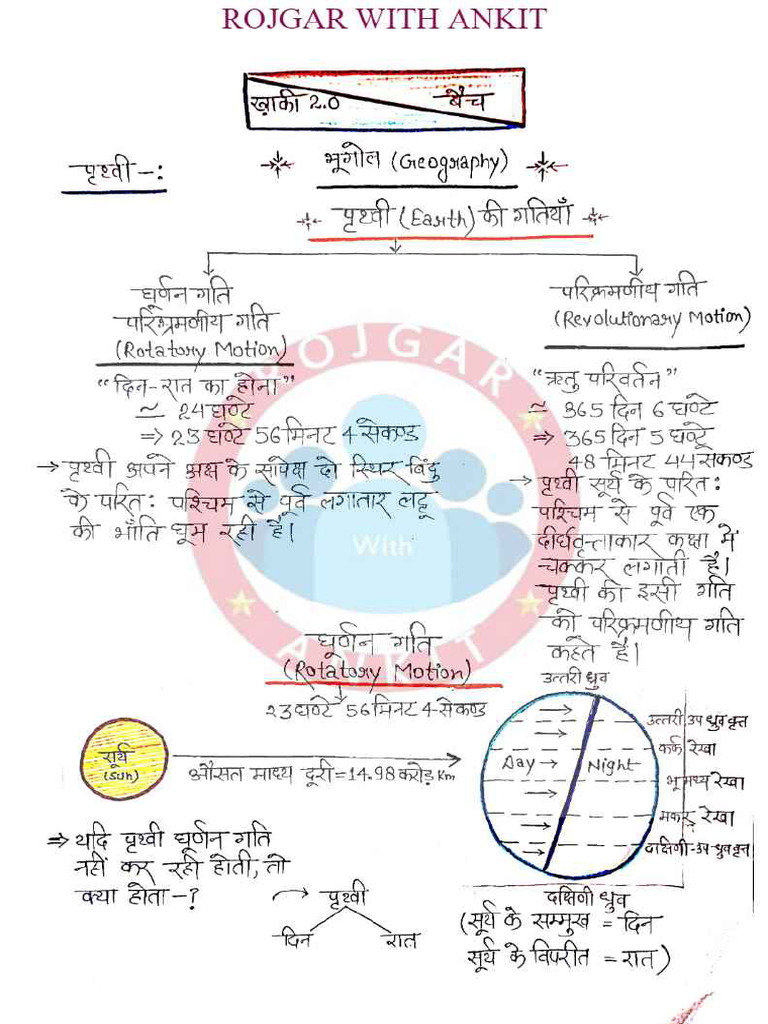 ROJGAR WITH ANKIT
ख़ाकी 2.0 बैच
पृथ्वी -:
भूगोल (Geography)
पृथ्वी (Earth) की गतियाँ
घूर्णन गति
परिभ्रमणीय गति
(Rotatory Motion)
"दिन-रात का होना"
≃ 24 घण्टे
⇒ 23 घण्टे 56 मिनट 4 सेकण्ड
→ पृथ्वी अपने अक्ष के सापेक्ष दो स्थिर बिंदु
के परित: पश्चिम से पूर्व लगातार लट्टू
की भाँति घूम रही है।
परिक्रमणीय गति
(Revolutionary Motion)
"ऋतु परिवर्तन"
≃ 365 दिन 6 घण्टे
⇒ 365 दिन 5 घण्टे
48 मिनट 44 सेकण्ड
→ पृथ्वी सूर्य के परित:
पश्चिम से पूर्व एक
दीर्घवृत्ताकार कक्षा में
चक्कर लगाती है।
पृथ्वी की इसी गति
को परिक्रमणीय गति
कहते है।
ROJGAR
With
ANKIT
घूर्णन गति
(Rotatory Motion)
23 घण्टे 56 मिनट 4 सेकण्ड
सूर्य
(Sun)
औसत माध्य दूरी = 14.98 करोड़ Km
उत्तरी ध्रुव
Day →
Night
उत्तरी उप ध्रुव वृत्त
कर्क रेखा
भूमध्य रेखा
मकर रेखा
दक्षिणी-उप ध्रुव वृत्त
दक्षिणी ध्रुव
(सूर्य के सम्मुख = दिन
सूर्य के विपरीत = रात)
⇒ यदि पृथ्वी घूर्णन गति
नहीं कर रही होती, तो
क्या होता -?
पृथ्वी
दिन रात